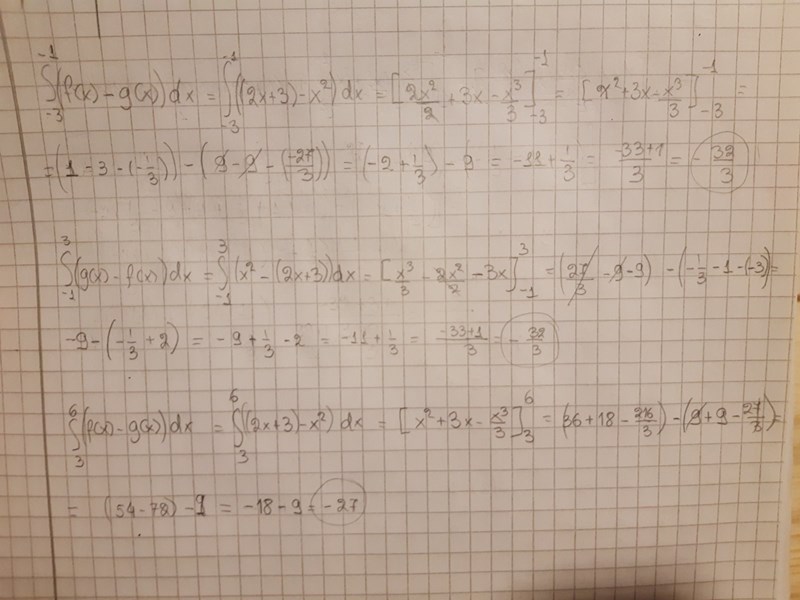 ∫_{-3}^{-1} (f(x) - g(x)) dx = ∫_{-3}^{-1} ((2x+3) - x²) dx = [2x²/2 + 3x - x³/3]_{-3}^{-1} = [x² + 3x - x³/3]_{-3}^{-1} =
= (1 - 3 - (-1/3)) - (9 - 9 - (-27/3)) = (-2 + 1/3) - 9 = -11 + 1/3 = (-33+1)/3 = -32/3
∫_{-1}^{3} (g(x) - f(x)) dx = ∫_{-1}^{3} (x² - (2x+3)) dx = [x³/3 - 2x²/2 - 3x]_{-1}^{3} = (27/3 - 9 - 9) - (-1/3 - 1 - (-3)) =
-9 - (-1/3 + 2) = -9 + 1/3 - 2 = -11 + 1/3 = (-33+1)/3 = -32/3
∫_{3}^{6} (f(x) - g(x)) dx = ∫_{3}^{6} ((2x+3) - x²) dx = [x² + 3x - x³/3]_{3}^{6} = (36 + 18 - 216/3) - (9 + 9 - 27/3) =
= (54 - 78) - 9 = -18 - 9 = -27